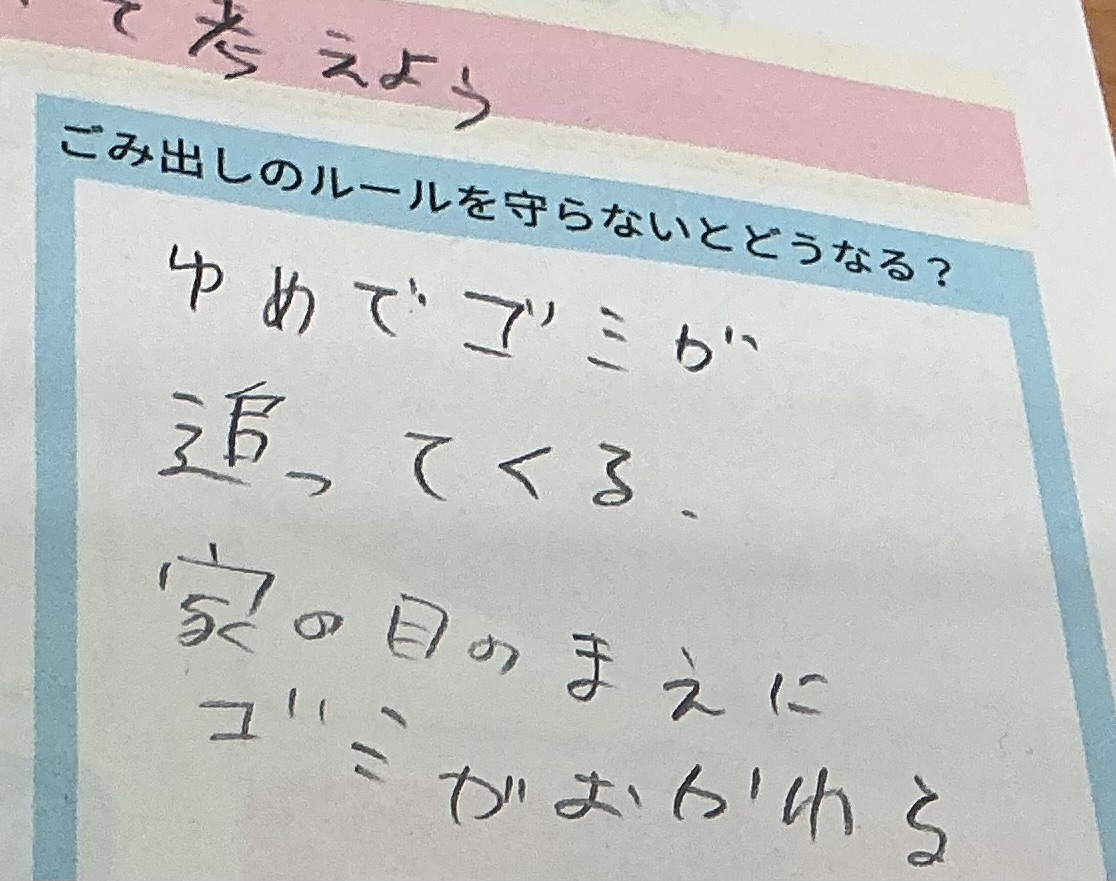 て考えよう
ごみ出しのルールを守らないとどうなる?
ゆめでゴミが
追ってくる.
家の目のまえに
ゴミがおかれる